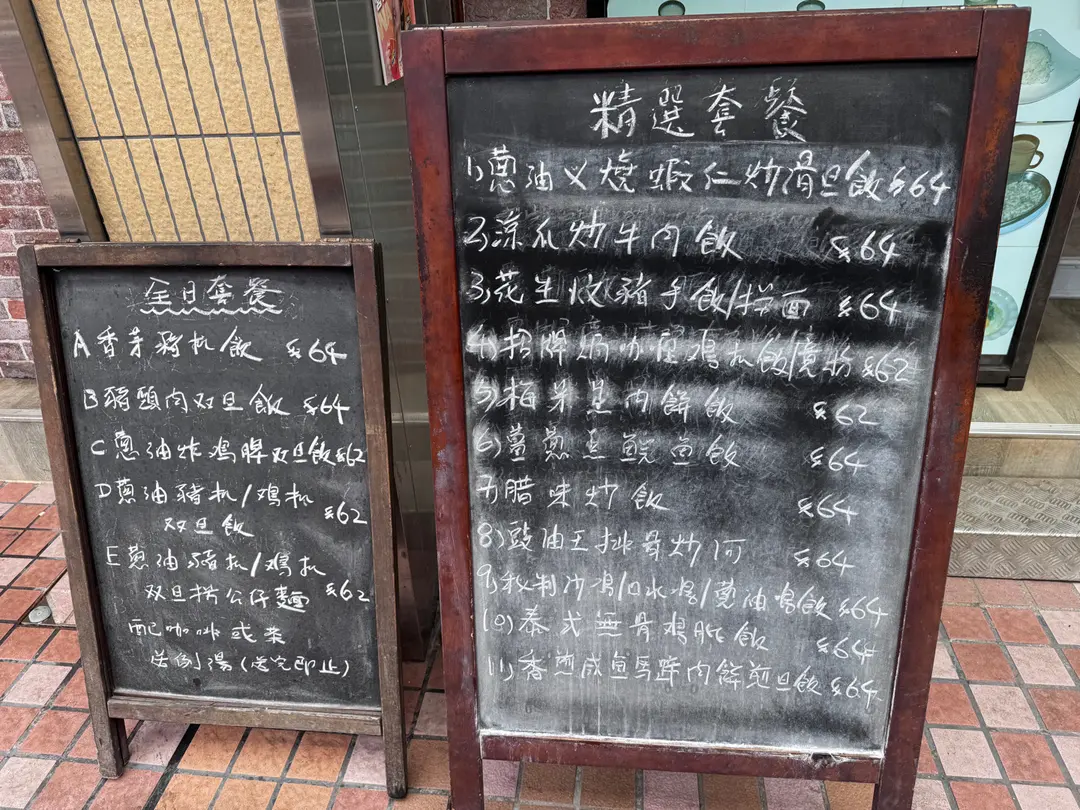 全日套餐
A 香茅豬扒飯 $64
B 豬頭肉双旦飯 $64
C 蔥油炸鸡脾双旦飯 $62
D 蔥油豬扒/鸡扒
双旦飯 $62
E 蔥油豬扒/鸡扒
双旦撈公仔麵 $62
配咖啡或茶
送例湯(送完即止)
精選套餐
1)蔥油叉燒蝦仁炒滑旦飯 $64
2)涼瓜炒牛肉飯 $64
3)花生炆豬手飯/撈面 $64
4)招牌焗咖喱鸡扒飯/意粉 $62
5)梅菜旦肉餅飯 $62
6)薑蔥旦鯇鱼飯 $64
7)腊味炒飯 $64
8)豉油王排骨炒河 $64
9)秘制沙鸡/口水鸡/蔥油鸡飯 $64
10)泰式無骨鸡扒飯 $64
11)香煎咸鱼馬蹄肉餅煎旦飯 $64